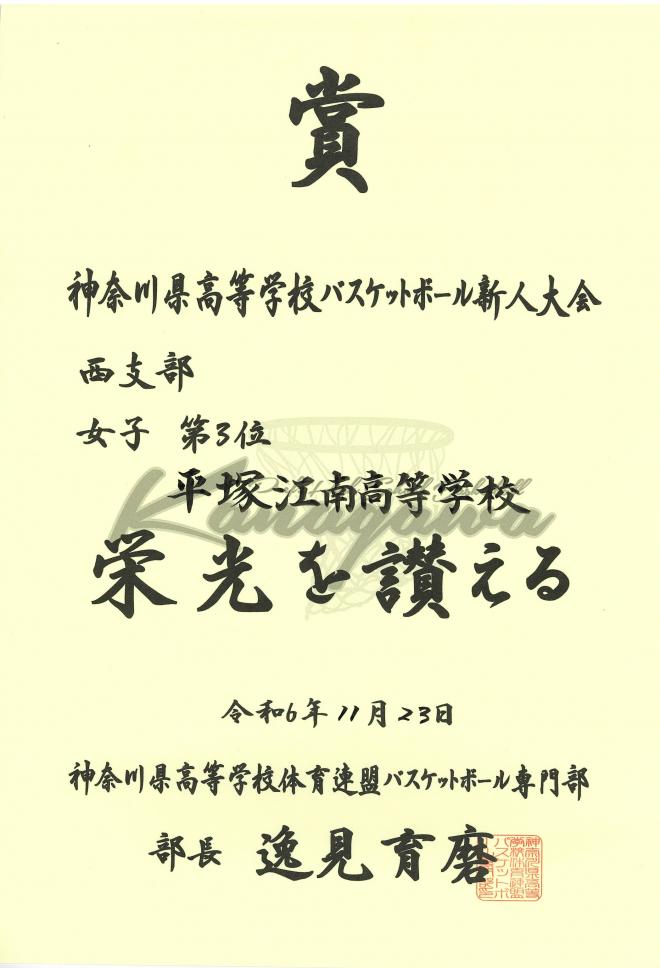 賞
神奈川県高等学校バスケットボール新人大会
西支部
女子 第3位
平塚江南高等学校
Kanagawa
栄光を讃える
令和6年11月23日
神奈川県高等学校体育連盟バスケットボール専門部
部長 逸見育磨